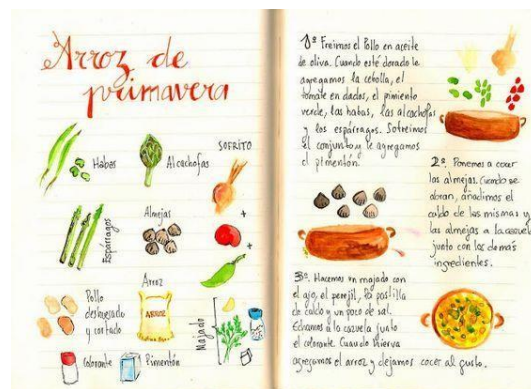 Arroz de
primavera
Habas
Alcachofas
SOFRITO
Espárragos
Almejas
+
+
Pollo
deshuesado
y cortado
Arroz
ARROZ
Majado
Colorante
Pimentón
1º Freímos el Pollo en aceite
de oliva. Cuando esté dorado le
agregamos la cebolla, el
tomate en dados, el pimiento
verde, las habas, las alcachofas
y los espárragos. Sofreímos
el conjunto y le agregamos
el pimentón.
2º. Ponemos a cocer
las almejas. Cuando se
abran, añadimos el
caldo de las mismas y
las almejas a la cazuela
junto con los demás
ingredientes.
3º. Hacemos un majado con
el ajo, el perejil, la pastilla
de caldo y un poco de sal.
Echamos a la cazuela junto
el colorante. Cuando hierva
agregamos el arroz y dejamos cocer al gusto.